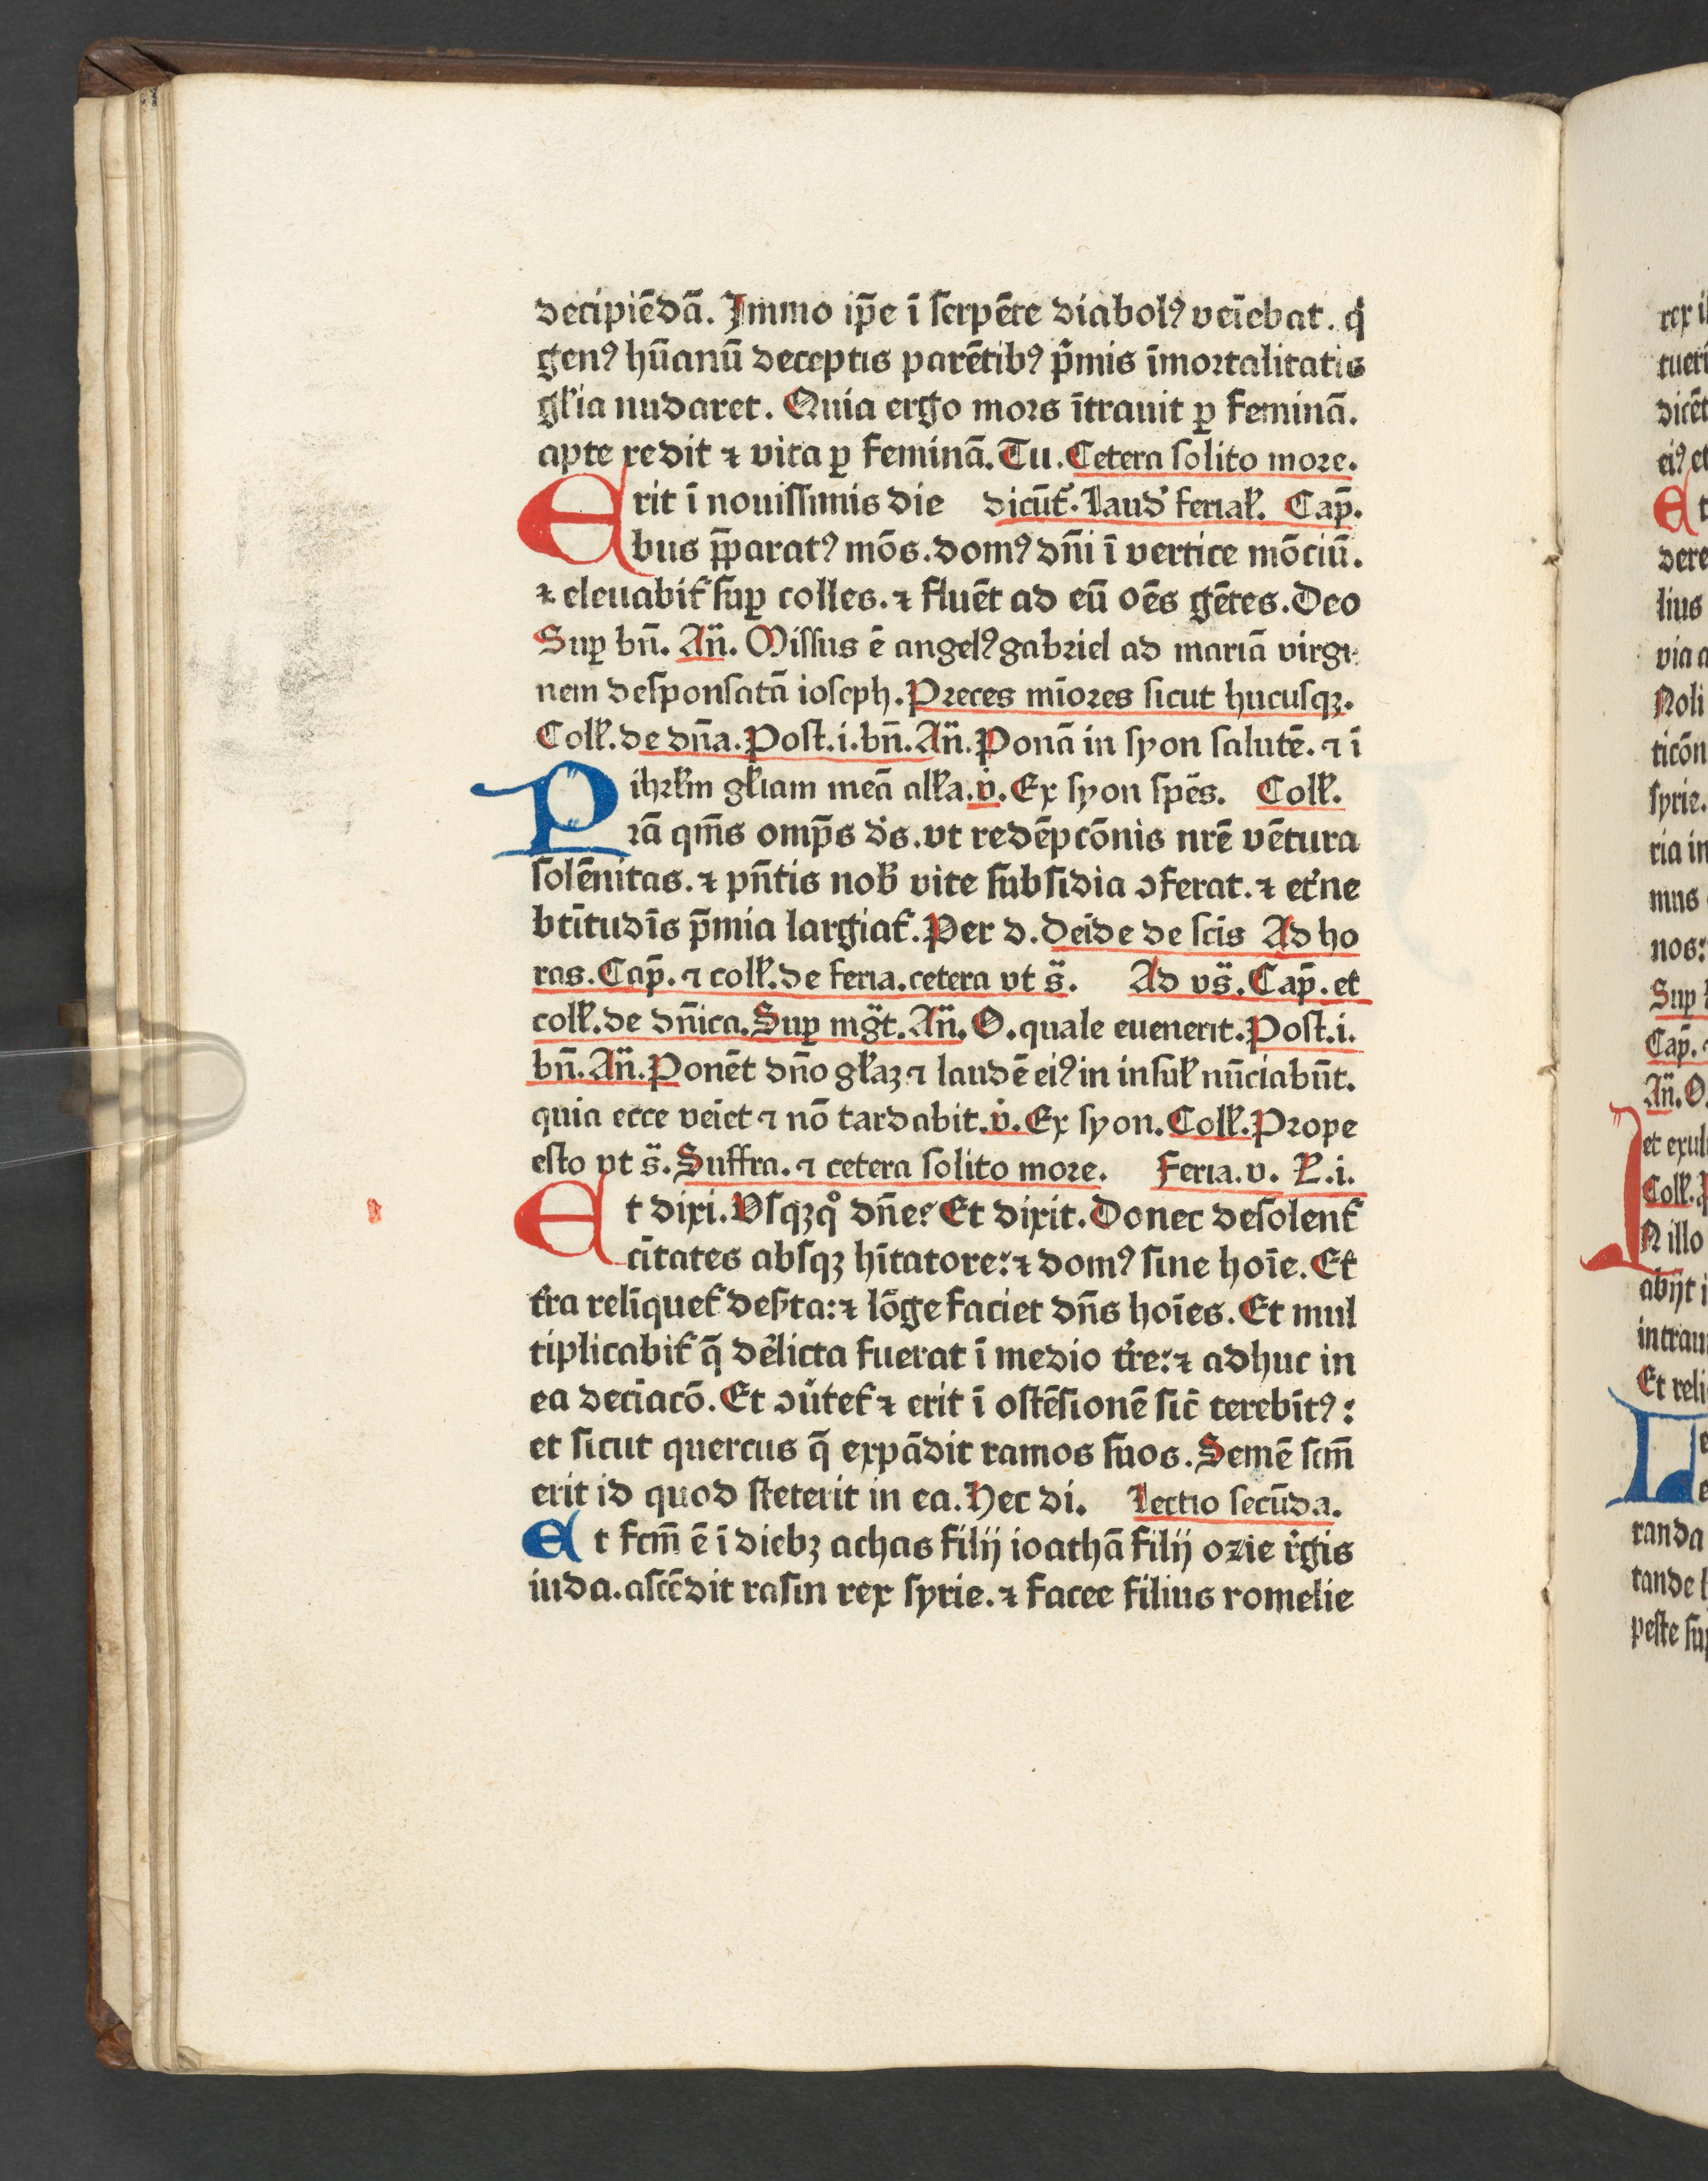 decipiēdā. Immo ip̄e ī serpēte diabolꝰ veīebat. q̇
genꝰ hūanū deceptis parētibꝰ p̄mis īmortalitatis
gl'ia nudaret. Quia ergo mors ītrauit ꝑ feminā.
apte redit ⁊ vita ꝑ feminā. Tu. Cetera solito more.
Erit ī nouissimis die dicūt'. Laud' ferial'. Cap̄.
bus p̄paratꝰ mōs. domꝰ dn̄i ī vertice mōciū.
⁊ eleuabit' suꝑ colles. ⁊ fluēt ad eū oēs gētes. Deo
Suꝑ bn̄. An̄. Missus ē angelꝰ gabriel ad mariā virgi
nem desponsatā ioseph. Preces mīores sicut hucusqꝫ.
Coll'. de dn̄a. Post. i. bn̄. An̄. Ponā in syon salutē. ⁊ ī
ihrl'm gl'iam meā all'a. v̇. Ex syon sp̄es. Coll'.
Prā qm̄s omp̄s d's. vt redēpcōnis nrē vētura
solēnitas. ⁊ pn̄tis nob' vite subsidia ↄferat. ⁊ et'ne
btītudīs p̄mia largiat'. Per d. Deīde de scīs Ad ho
ras. Cap̄. ⁊ coll'. de feria. cetera vt s̄. Ad vs̄. Cap̄. et
coll'. de dn̄ica. Suꝑ mḡt. An̄. O. quale euenerit. Post. i.
bn̄. An̄. Ponēt dn̄o gl'aꝫ ⁊ laudē eiꝰ in insul' nūciabūt.
quia ecce veīet ⁊ nō tardabit. v̇. Ex syon. Coll'. Prope
esto vt s̄. Suffra. ⁊ cetera solito more. Feria. v. L'. i.
Et dixi. Vsqꝫqͦ dn̄e? Et dixit. Donec desolent'
cītates absqꝫ hītatore: ⁊ domꝰ sine hoīe. Et
t'ra relīquet' des'ta: ⁊ lōge faciet dn̄s hoīes. Et mul
tiplicabit' q̄ dēlicta fuerat ī medio t're: ⁊ adhuc in
ea deciacō. Et ↄu'tet' ⁊ erit ī ostēsionē sic̄ terebītꝰ:
et sicut quercus q̄ expādit ramos suos. Semē scm̄
erit id quod steterit in ea. Hec di. Lectio secūda.
Et fcm̄ ē ī diebꝫ achas filij ioathā filij ozie r'gis
iuda. ascēdit rasin rex syrie. ⁊ facee filius romelie
Noli
lius
syrie.
ria in
nos:
Coll'.
N illo
abijt i
Et reli
randa